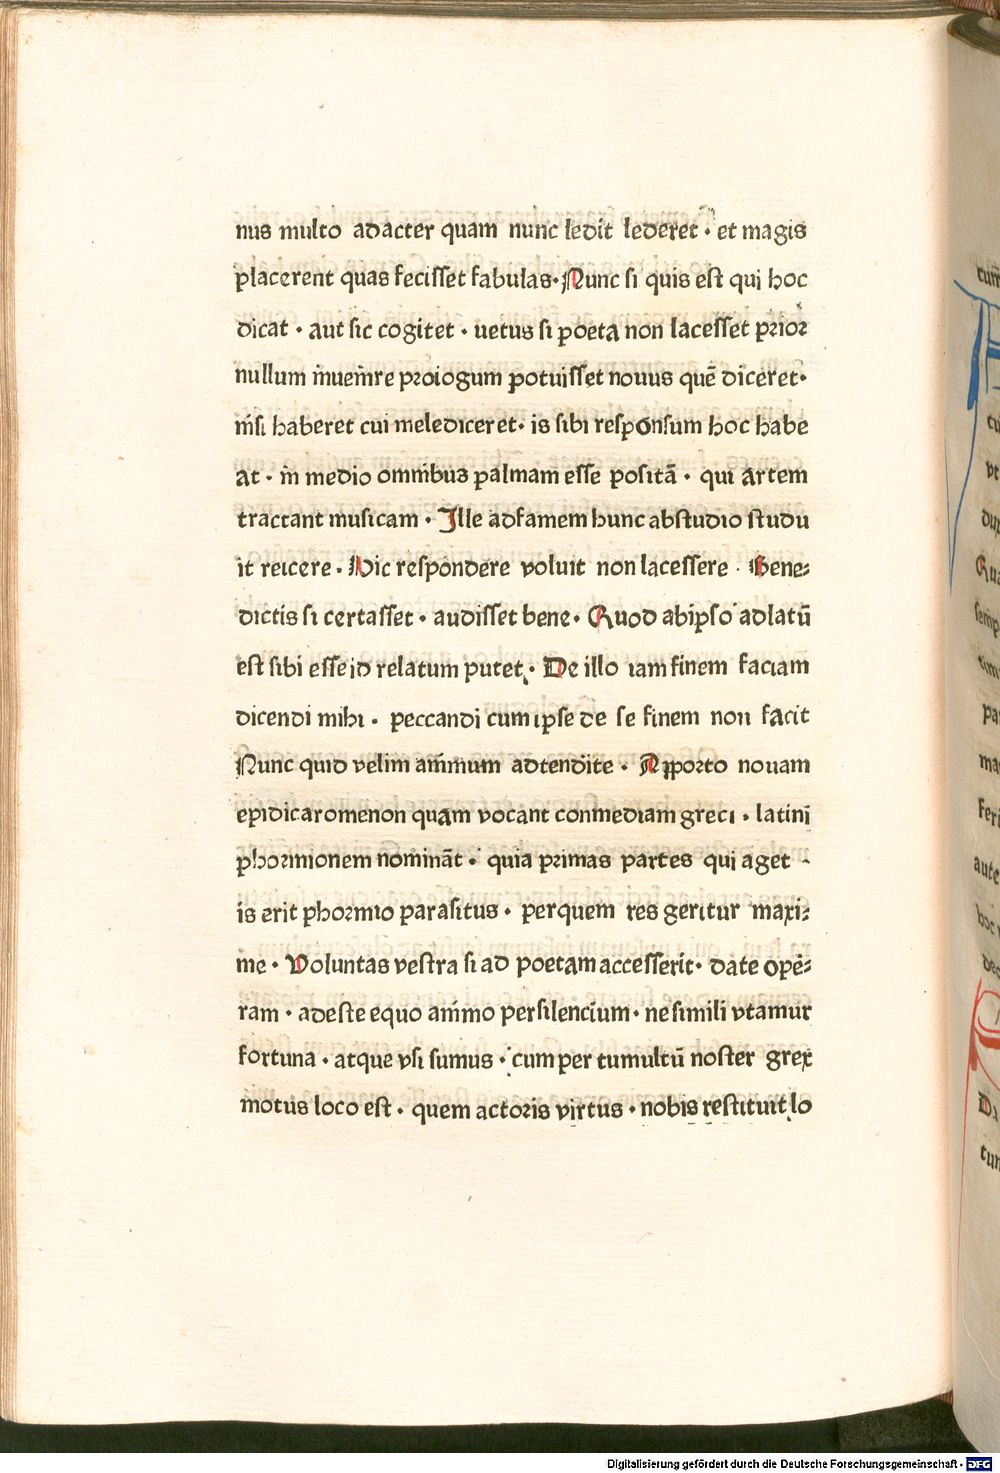 nus multo adacter quam nunc ledit lederet · et magis
placerent quas feciſſet fabulas· Nunc ſi quis eſt qui hoc
dicat · aut ſic cogitet · uetus ſi poeta non laceſſet prior
nullum m̄uem̄re proiogum potuiſſet nouus quē diceret·
m̄ſi haberet cui melediceret· is ſibi reſponſum hoc habe
at · m̄ medio omm̄bus palmam eſſe poſitā · qui artem
tractant muſicam · Ille adfamem hunc abſtudio ſtudu
it reicere · Hic reſpondere voluit non laceſſere · Bene⸗
dictis ſi certaſſet · audiſſet bene· Quod abipſo adlatū
eſt ſibi eſſe id relatum putet · De illo iam finem faciam
dicendi mihi · peccandi cum ipſe de ſe finem non facit
Nunc quid velim am̄mum adtendite · Apporto nouam
epidicaromenon quam vocant conmediam greci · latini
phormionem nomināt · quia primas partes qui aget
is erit phormio paraſitus · perquem res geritur maxi⸗
me · Voluntas veſtra ſi ad poetam acceſſerit· date opē⸗
ram · adeſte equo am̄mo per ſilencium· ne ſimili vtamur
fortuna · atque vſi ſumus · cum per tumultū noſter grex
motus loco eſt · quem actoris virtus · nobis reſtituit lo
Digitalisierung gefördert durch die Deutsche Forschungsgemeinschaft - DFG